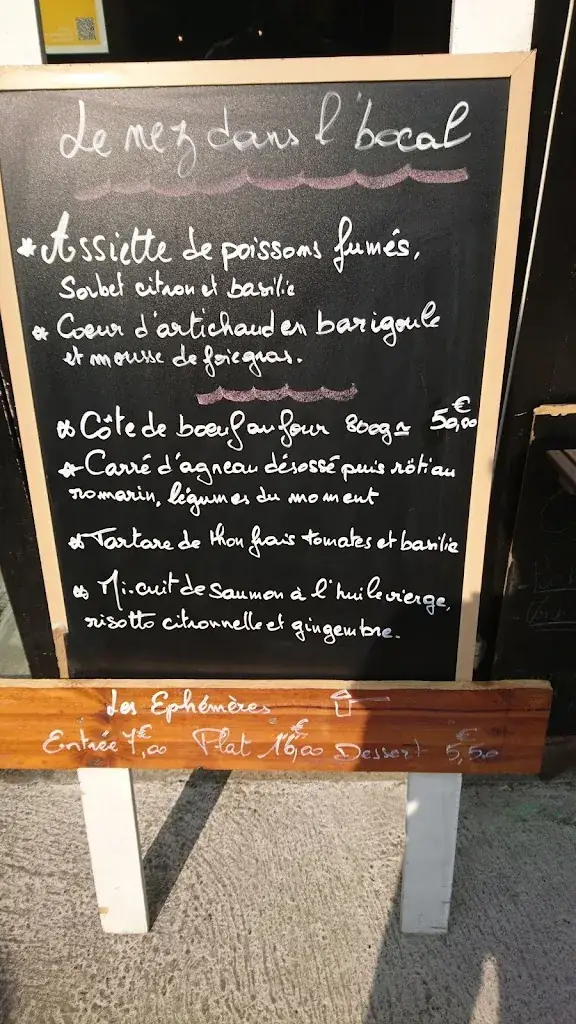 Le nez dans l'bocal
* Assiette de poissons fumés,
Sorbet citron et basilic
* Coeur d'artichaud en barigoule
et mousse de foie gras.
* Côte de boeuf au four 800g ≃ 50,00 €
* Carré d'agneau désossé puis rôti au
romarin, légumes du moment
* Tartare de thon frais tomates et basilic
* Mi-cuit de saumon à l'huile vierge,
risotto citronnelle et gingembre.
Les Ephémères
Entrée 7,00 € Plat 16,00 € Dessert 5,50 €